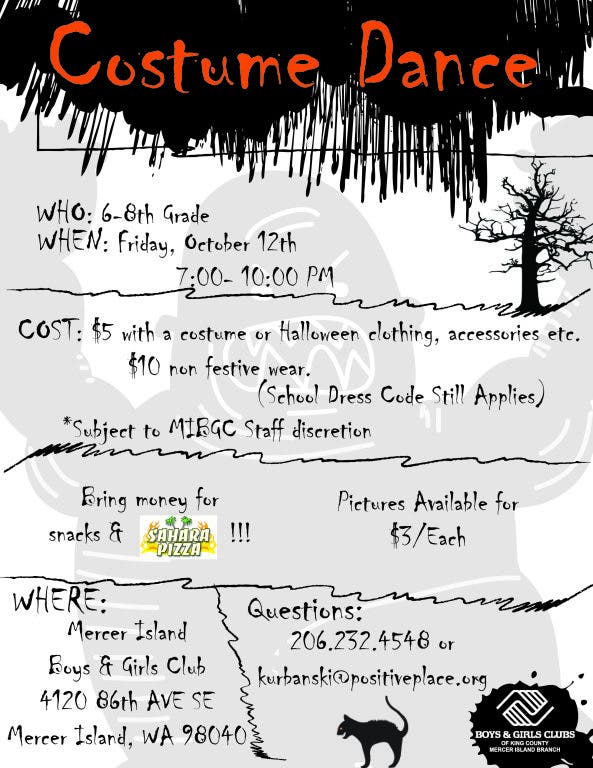 Costume Dance
WHO: 6-8th Grade
WHEN: Friday, October 12th
7:00- 10:00 PM
COST: $5 with a costume or Halloween clothing, accessories etc.
$10 non festive wear.
(School Dress Code Still Applies)
*Subject to MIBGC Staff discretion
Bring money for
snacks & SAHARA PIZZA !!!
Pictures Available for
$3/Each
WHERE:
Mercer Island
Boys & Girls Club
4120 86th AVE SE
Mercer Island, WA 98040
Questions:
206.232.4548 or
kurbanski@positiveplace.org
BOYS & GIRLS CLUBS
OF KING COUNTY
MERCER ISLAND BRANCH